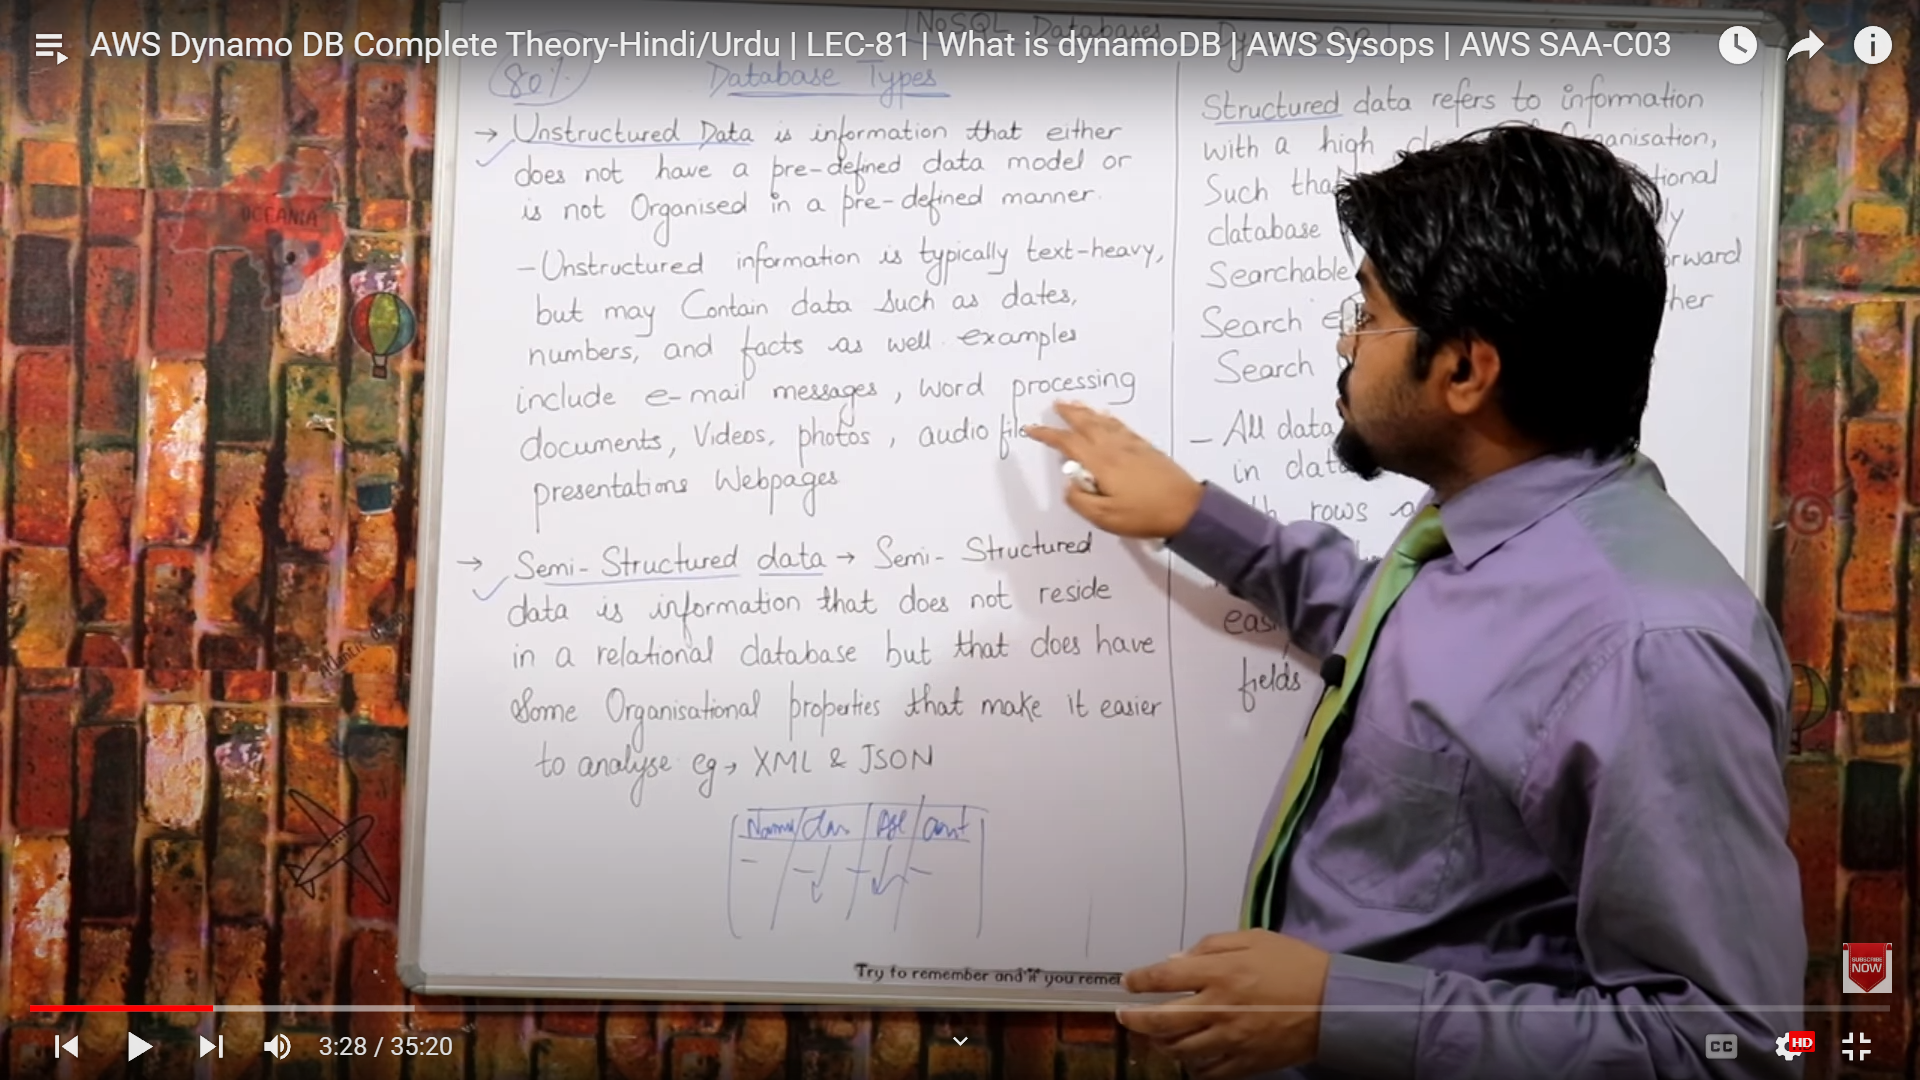 AWS Dynamo DB Complete Theory-Hindi/Urdu | LEC-81 | What is dynamoDB | AWS Sysops | AWS SAA-C03
NoSQL Databases
80%
Database Types
→ Unstructured Data is information that either
does not have a pre-defined data model or
is not Organised in a pre-defined manner.
- Unstructured information is typically text-heavy,
but may Contain data such as dates,
numbers, and facts as well examples
include e-mail messages, word processing
documents, Videos, photos, audio
presentations Webpages
→ Semi-Structured data → Semi-Structured
data is information that does not reside
in a relational database but that does have
Some Organisational properties that make it easier
to analyse eg → XML & JSON
Structured data refers to information
with a high
Such
database
Searchable
Search
Search
- All data
in
rows
fields
OCEANIA
Atlantic
Try to remember and if you
SUBSCRIBE
NOW
3:28 / 35:20
CC
HD